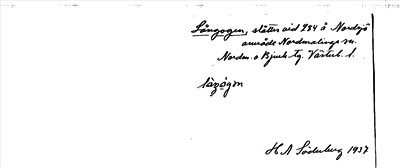 Långogen, slåtter vid 284 å Nordsjö
område Nordmalings sn.
Nordm. o Bjurh. tg. Västerb. l.
låŋògɔn
H A Söderberg 1937